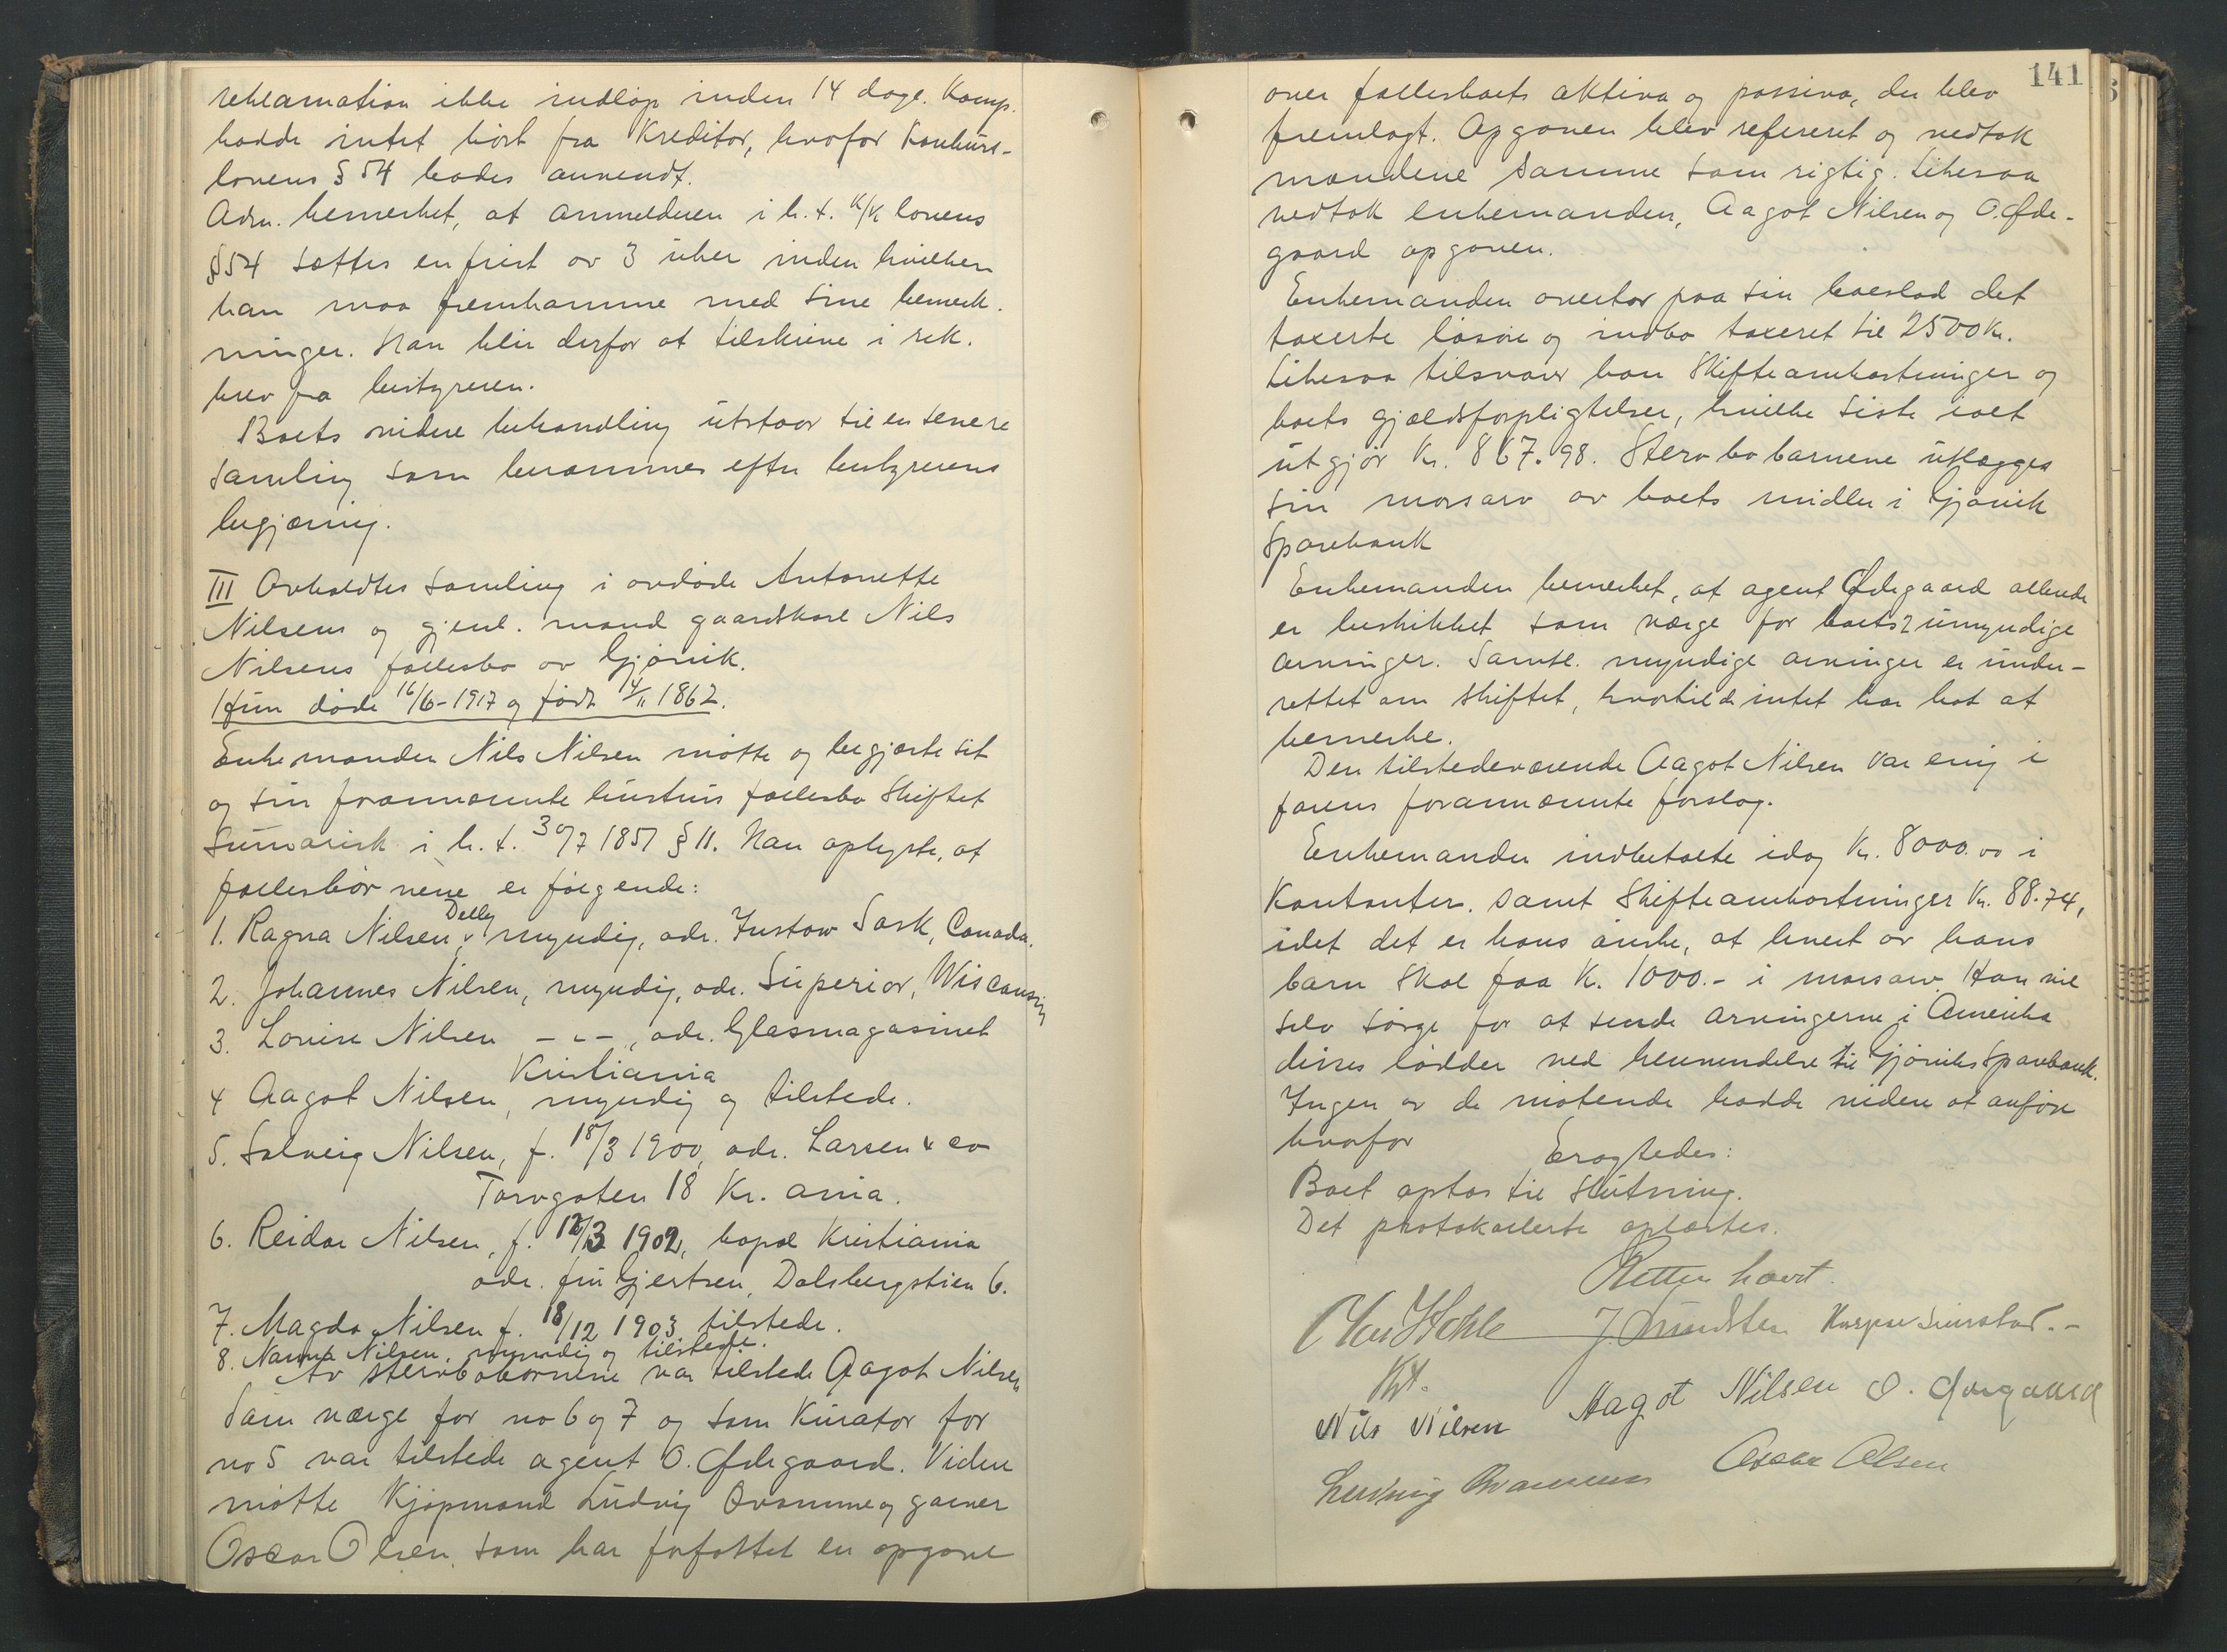 reklamation ikke indløp inden 14 dage. Komp.
hadde intet hört fra Kreditor, hvorfor Konkurs-
lovens § 54 bødes anvendt.
Adm. bemerket, at anmelderen i h.t. K/K lovens
§ 54 sættes en frist av 3 uker inden hvilken
han maa fremkomme med sine bemerk.
ninger. Han blir derfor at tilskrive i rek.
brev fra bestyreren.
Boets videre behandling utstaar til en senere
samling som berammes efter bestyrerens
begjæring.
III Avholdtes samling i avdøde Antonette
Nilsens og gjenl. mand gaardskarl Nils
Nilsens fællesbo av Gjövik.
Hun döde 16/6-1917 og födt 14/11 1862.
Enkemanden Nils Nilsen mötte og begjærte sit
og sin forannævnte hustrus fællesbo skiftet
sumarisk i h.t. 30/7 1851 § 11. Han oplyste, at
fællesbörnene er fölgende:
1. Ragna Nilsen Delly, myndig, adr. Sask, Canada.
2. Johannes Nilsen, myndig, adr. Superior, Wisconsin
3. Lovise Nilsen -"-, adr. Glasmagasinet
Kristiania
4 Aagot Nilsen, myndig og tilstede.
5. Solveig Nilsen, f. 18/3 1900, adr. Larsen & co
Torvgaten 18 Kr.ania.
6. Reidar Nilsen, f. 12/3 1902, bopæl Kristiania
adr. fru Gjertsen, Dalsbergstien 6.
7. Magda Nilsen f. 18/12 1903 tilstede.
8. Nanna Nilsen, myndig og tilstede.
Av stervbobörnene var tilstede Aagot Nilsen
Som værge for no 6 og 7 og som Kurator for
no 5 var tilstede agent O. Ødegaard. Videre
mötte Kjöpmand Ludvig Ovamme og garver
Oscar Olsen, som har forfattet en opgave
141
over fællesboets aktiva og passiva, der blev
fremlagt. Opgaven blev refereret og vedtok
mændene samme som rigtig. Likesaa
vedtok enkemanden, Aagot Nilsen og O. Øde-
gaard opgaven.
Enkemanden overtar paa sin boeslod det
taxerte lösöre og indbo taxeret til 2500 Kr.
Likesaa tilsvarer han Skifteomkostninger og
boets gjældsforpligtelser, hvilke siste ialt
utgjör Kr. 867.98. Stervbobarnene utlægges
sin morsarv av boets midler i Gjövik
Sparebank
Enkemanden bemerket, at agent Ødegaard allerede
er beskikket som værge for boets 2 umyndige
arvinger. Samtl. myndige arvinger er under-
rettet om skiftet, hvortil de intet har hat at
bemerke.
Den tilstedeværende Aagot Nilsen var enig i
farens forannævnte forslag.
Enkemanden indbetalte idag Kr. 8000.00 i
Kontanter. samt Skifteomkostninger Kr. 88.74,
idet det er hans önske, at hvert av hans
barn skal faa Kr. 1000.- i morsarv. Han vil
selv sörge for at sende arvingerne i Amerika
disses lödder ved henvendelse til Gjöviks Sparebank.
Ingen av de mötende hadde videre at anföre
hvorfor
Eragtedes:
Boet optas til slutning.
Det protokollerte oplæstes.
Retten hævet.
J. Lundsten
Nils Nilsen Aagot Nilsen O. Ødegaard
Ludvig Ovamme Oscar Olsen